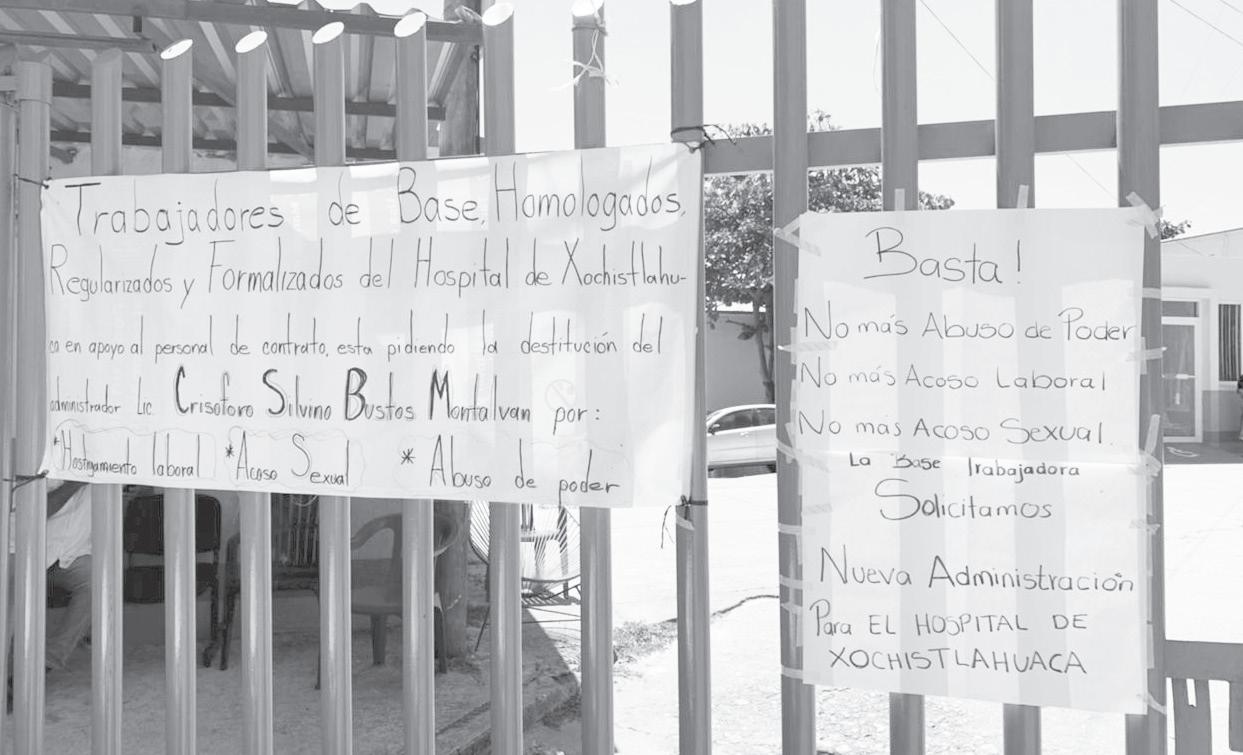 Trabajadores de Base, Homologados,
Regularizados y Formalizados del Hospital de Xochistlahu-
ca en apoyo al personal de contrato, esta pidiendo la destitución del
administrador Lic. Crisoforo Silvino Bustos Montalvan por:
*Hostigamiento laboral *Acoso Sexual * Abuso de poder
Basta!
No más Abuso de Poder
No más Acoso Laboral
No más Acoso Sexual.
La Base Trabajadora
Solicitamos
Nueva Administración
Para EL HOSPITAL DE
XOCHISTLAHUACA